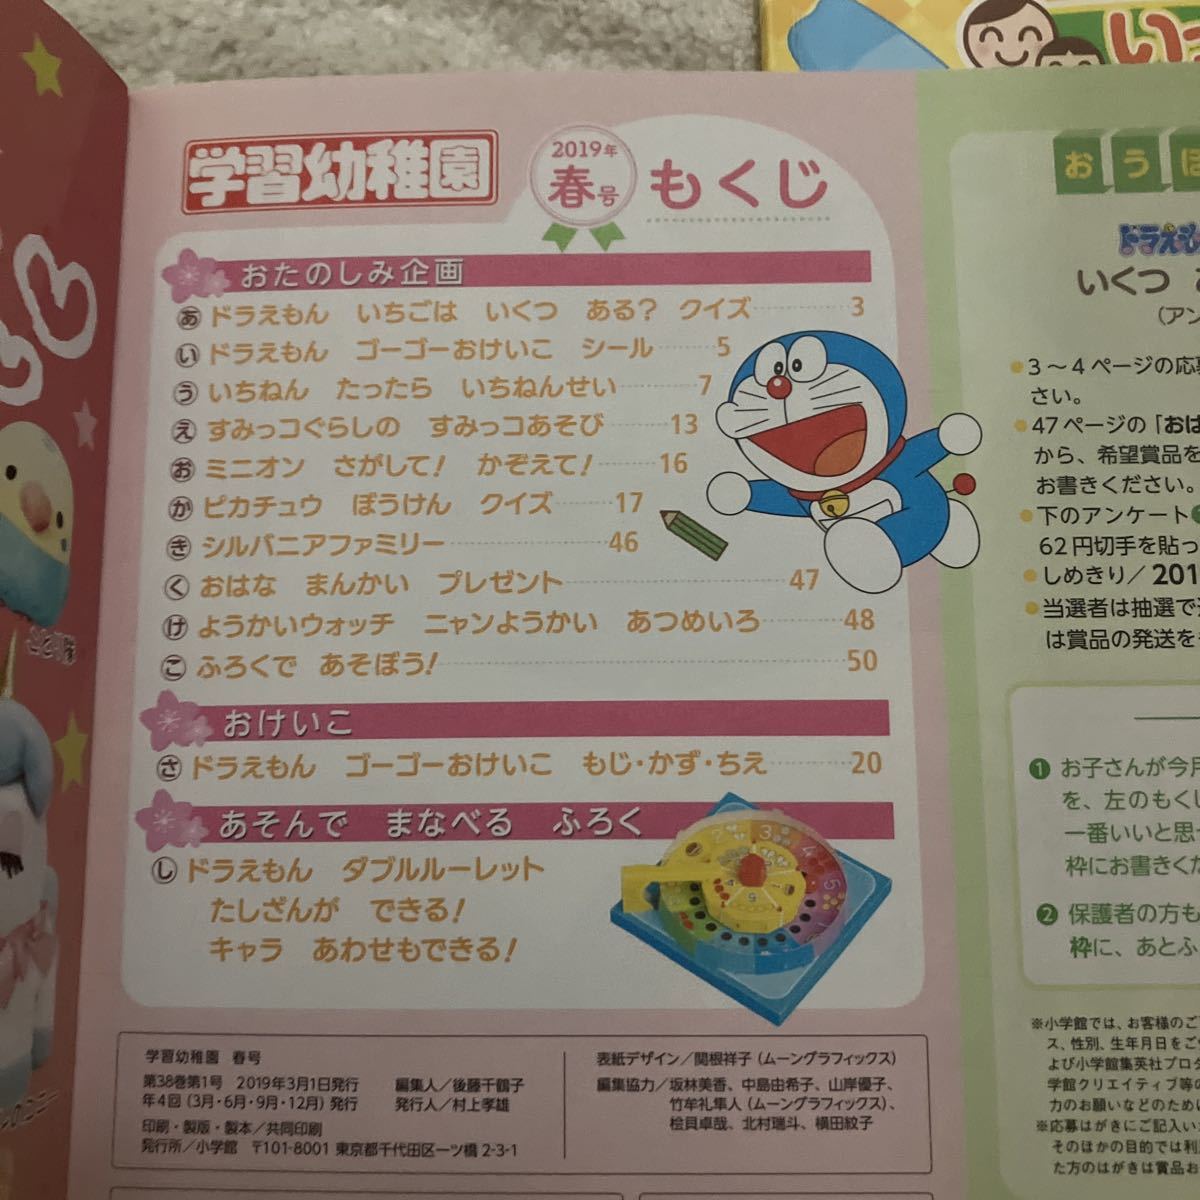 学習幼稚園
2019年
春号
もくじ
おたのしみ企画
あ ドラえもん いちごは いくつ ある? クイズ 3
い ドラえもん ゴーゴーおけいこ シール 5
う いちねん たったら いちねんせい 7
え すみっコぐらしの すみっコあそび 13
お ミニオン さがして! かぞえて! 16
か ピカチュウ ぼうけん クイズ 17
き シルバニアファミリー 46
く おはな まんかい プレゼント 47
け ようかいウォッチ ニャンようかい あつめいろ 48
こ ふろくで あそぼう! 50
おけいこ
さ ドラえもん ゴーゴーおけいこ もじ・かず・ちえ 20
あそんで まなべる ふろく
し ドラえもん ダブルルーレット
たしざんが できる!
キャラ あわせもできる!
学習幼稚園 春号
第38巻第1号 2019年3月1日発行
年4回(3月・6月・9月・12月)発行
編集人/後藤千鶴子
発行人/村上孝雄
印刷・製版・製本/共同印刷
発行所/小学館 〒101-8001 東京都千代田区一ツ橋2-3-1
表紙デザイン/関根祥子(ムーングラフィックス)
編集協力/坂林美香、中島由希子、山岸優子、
竹牟礼隼人(ムーングラフィックス)、
桧貝卓哉、北村瑞斗、横田紋子
おうぼ
ドラえも
いくつ
(アン
●3〜4ページの応募
さい。
●47ページの「おは
から、希望賞品を
お書きください。
●下のアンケート❶
62円切手を貼っ
●しめきり/201
●当選者は抽選で
は賞品の発送を
❶ お子さんが今月
を、左のもくじ
一番いいと思
枠にお書きくだ
❷ 保護者の方も
枠に、あとふ
※小学館では、お客様のご
ス、性別、生年月日をご
よび小学館集英社プロダ
学館クリエイティブ等の
力のお願いなどのため
※応募はがきにご記入い
そのほかの目的では利
た方のはがきは賞品お